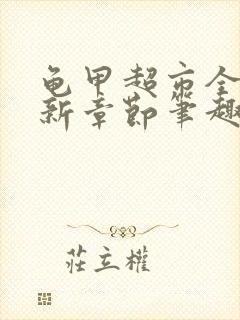 龟甲超市全
新章節筆趣
莊立權